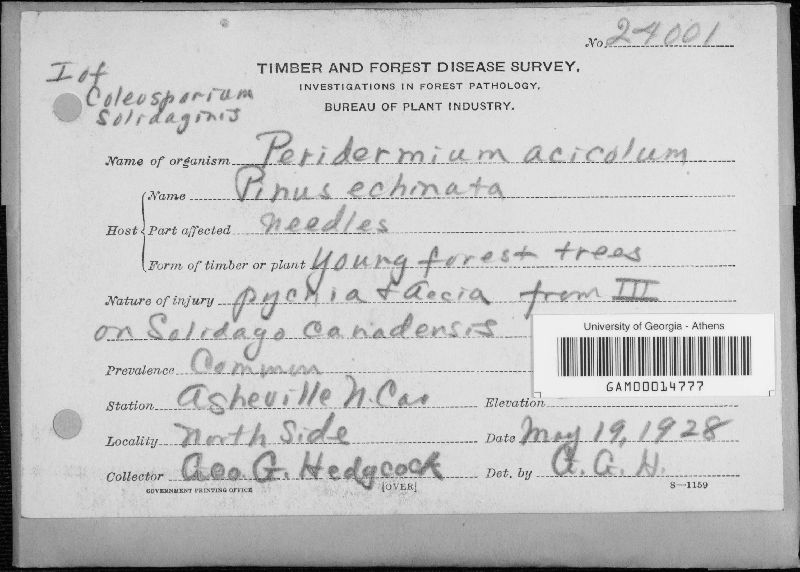 No. 24001
I of
Coleosporium
Solidaginis
TIMBER AND FOREST DISEASE SURVEY,
INVESTIGATIONS IN FOREST PATHOLOGY,
BUREAU OF PLANT INDUSTRY.
Name of organism Peridermium acicolum
Host
Name Pinus echinata
Part affected needles
Form of timber or plant young forest trees
Nature of injury pycnia & aecia from III
on Solidago canadensis
University of Georgia - Athens
GAM00014777
Prevalence Common
Station Asheville N. Car
Elevation
Locality North Side
Date May 19, 1928
Collector Geo. G. Hedgcock
Det. by G. G. H.
GOVERNMENT PRINTING OFFICE
[OVER]
8—1159